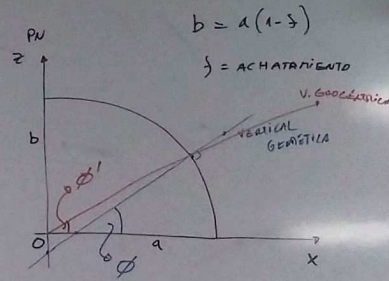 PN
b = a(1-f)
Z
f = ACHATAMIENTO
V. GEOCÉNTRICA
VERTICAL
GEODÉTICA
b
Φ'
O
a
Φ
X